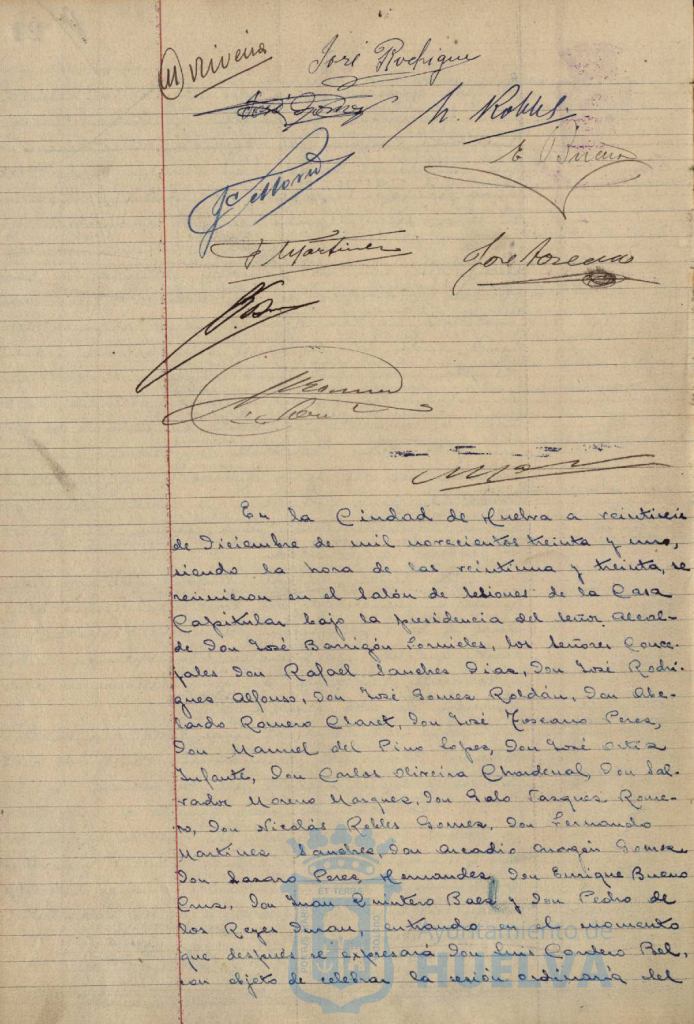 Oliveira
José Rodrigue
José Gomez
N. Robles
E Bueno
S Moreno
F Martinez
José Toscano
En la Ciudad de Huelva a veintiseis
de Diciembre de mil novecientos treinta y uno,
siendo la hora de las veintiuna y treinta, se
reunieron en el salón de sesiones de la Casa
Capitular bajo la presidencia del Señor Alcal-
de Don José Barrigón Fornieles, los Señores Conce-
jales Don Rafael Sanches Dias, Don José Rodri-
gues Alfonso, Don José Gomes Roldán, Don Abe-
lardo Romero Claret, Don José Toscano Peres,
Don Manuel del Pino Lopes, Don José Ortiz
Infante, Don Carlos Oliveira Chardenal, Don Sal-
vador Moreno Marques, Don Galo Vasques Rome-
ro, Don Nicolás Robles Gomes, Don Fernando
Martines Sanches, Don Arcadio Aragón Gomes
Don Lazaro Peres Hernandes, Don Enrique Bueno
Cruz, Don Juan Quintero Baez y Don Pedro de
los Reyes Duran, entrando en el momento
que después se expresará Don Luis Cordero Bel,
con objeto de celebrar la sesión ordinaria del
ET TERRÆ
Ayuntamiento de
HUELVA